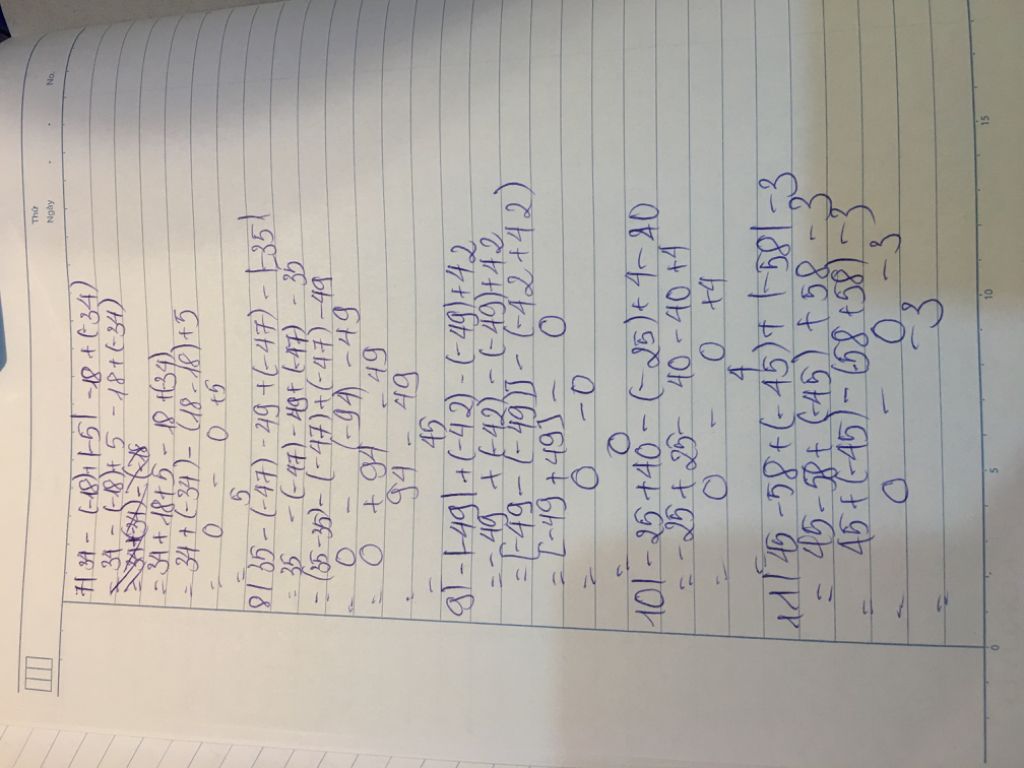 Thứ
Ngày
No.
7) 34 - (-18) + |-5| - 18 + (-34)
= 34 - (-18) + 5 - 18 + (-34)
= 34 + 18 + 5 - 18 + (34)
= 34 + (-34) - (18 - 18) + 5
= 0 - 0 + 5
= 5
8) 35 - (-47) - 49 + (-47) - |-35|
= 35 - (-47) - 49 + (-47) - 35
= (35-35) - (-47) + (-47) - 49
= 0 - (-94) - 49
= 0 + 94 - 49
= 94 - 49
= 45
9) - |-49| + (-42) - (-49) + 42
= -49 + (-42) - (-49) + 42
= [-49 - (-49)] - (-42 + 42)
= [-49 + 49] - 0
= 0 - 0
= 0
10) -25 + 40 - (-25) + 4 - 40
= -25 + 25 - 40 - 40 + 4
= 0 - 0 + 4
= 4
11) 45 - 58 + (-45) + |-58| - 3
= 45 - 58 + (-45) + 58 - 3
= 45 + (-45) - (58 + 58) - 3
= 0 - 0 - 3
= -3
0 5 10 15